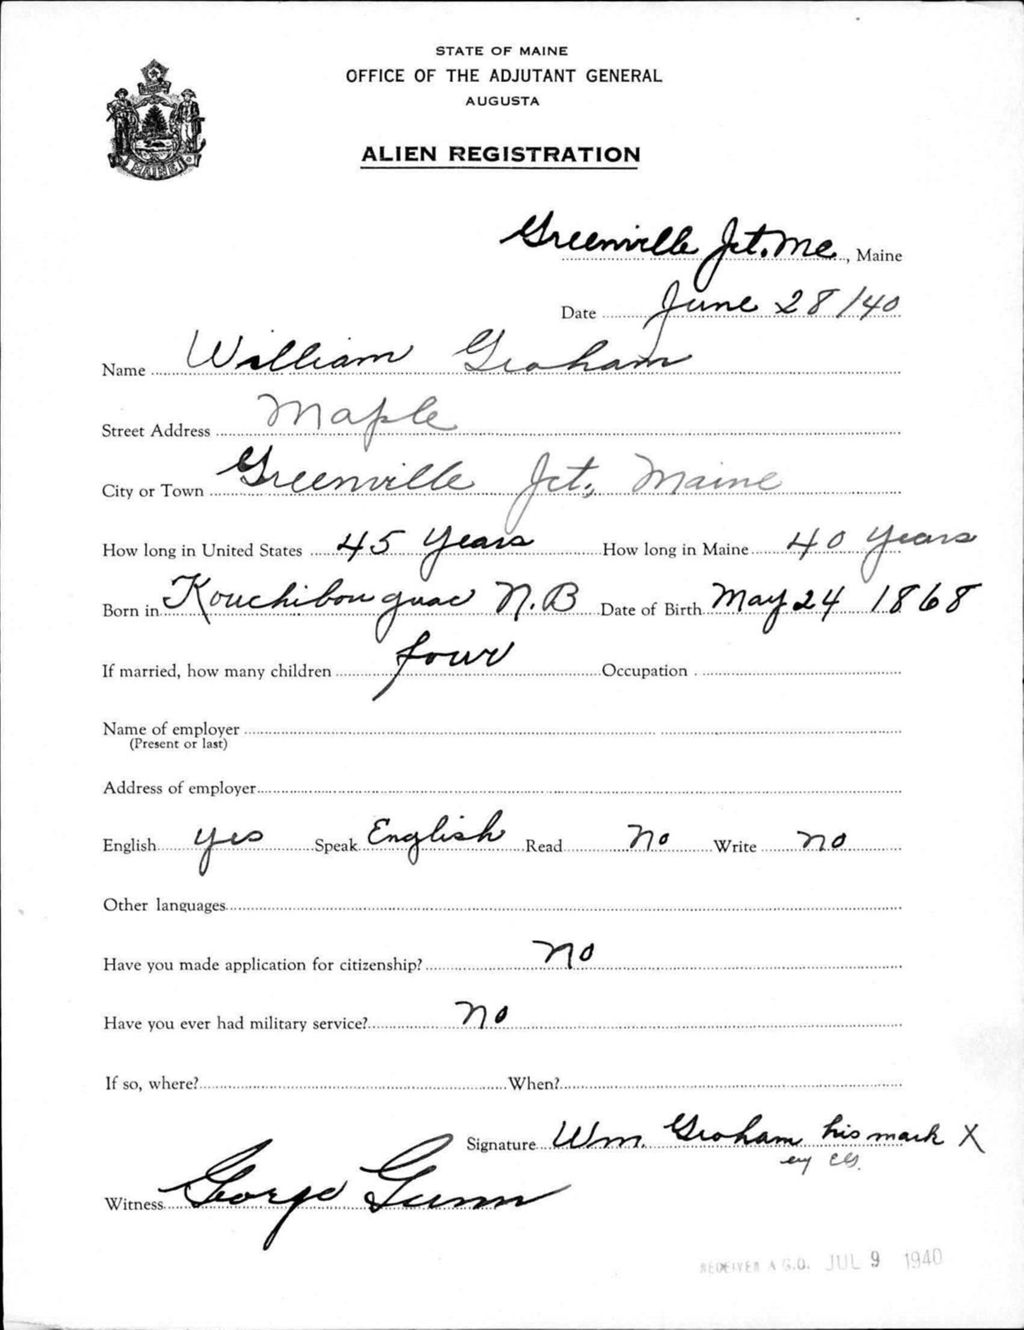 STATE OF MAINE
OFFICE OF THE ADJUTANT GENERAL
AUGUSTA
ALIEN REGISTRATION
MAINE
Greenville Jct. Me., Maine
Date June 28/40
Name William Graham
Street Address Maple
City or Town Greenville Jct., Maine
How long in United States 45 Years How long in Maine 40 Years
Born in Kouchibouguac N.B Date of Birth May 24 1868
If married, how many children four Occupation
Name of employer
(Present or last)
Address of employer
English yes Speak English Read no Write no
Other languages
Have you made application for citizenship? no
Have you ever had military service? no
If so, where? When?
Signature Wm. Graham his mark X
Witness George Gunn
RECEIVED A.G.O. JUL 9 1940